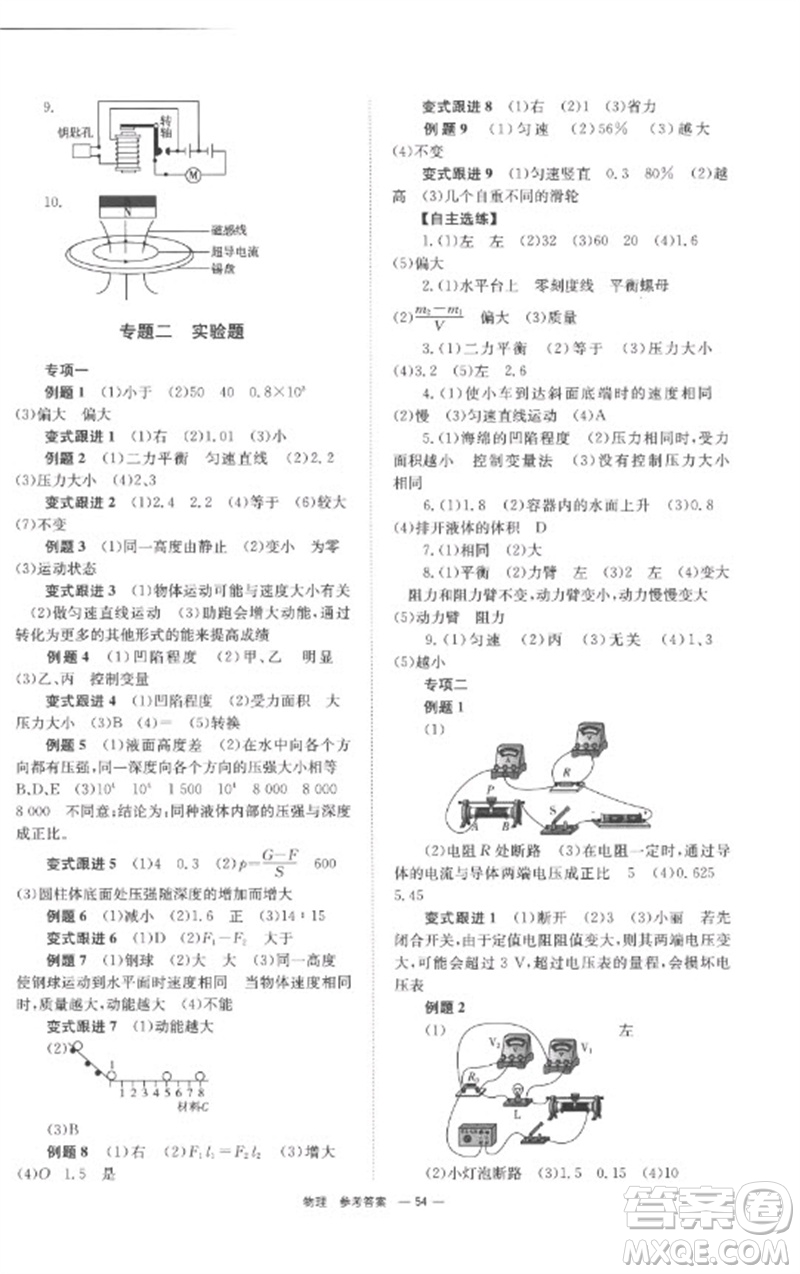 9.
钥匙孔
转轴
M
10.
N
磁感线
超导电流
锡盘
专题二 实验题
专项一
例题1 (1)小于 (2)50 40 0.8×10³
(3)偏大 偏大
变式跟进1 (1)右 (2)1.01 (3)小
例题2 (1)二力平衡 匀速直线 (2)2.2
(3)压力大小 (4)2、3
变式跟进2 (1)2.4 2.2 (4)等于 (6)较大
(7)不变
例题3 (1)同一高度由静止 (2)变小 为零
(3)运动状态
变式跟进3 (1)物体运动可能与速度大小有关
(2)做匀速直线运动 (3)助跑会增大动能，通过
转化为更多的其他形式的能来提高成绩
例题4 (1)凹陷程度 (2)甲、乙 明显
(3)乙、丙 控制变量
变式跟进4 (1)凹陷程度 (2)受力面积 大
压力大小 (3)B (4)= (5)转换
例题5 (1)液面高度差 (2)在水中向各个方
向都有压强，同一深度向各个方向的压强大小相等
B、D、E (3)10⁴ 10⁴ 1 500 10⁴ 8 000 10⁴
8 000 不同意；结论为：同种液体内部的压强与深度
成正比。
变式跟进5 (1)4 0.3 (2)p=G-F/S 600
(3)圆柱体底面处压强随深度的增加而增大
例题6 (1)减小 (2)1.6 正 (3)14：15
变式跟进6 (1)D (2)F₁-F₂ 大于
例题7 (1)钢球 (2)大 大 (3)同一高度
使钢球运动到水平面时速度相同 当物体的速度相同
时，质量越大，动能越大 (4)不能
变式跟进7 (1)动能越大
(2)
1
1 2 3 4 5 6 7 8
材料C
(3)B
例题8 (1)右 (2)F₁l₁=F₂l₂ (3)增大
(4)O 1.5 是
变式跟进8 (1)右 (2)1 (3)省力
例题9 (1)匀速 (2)56% (3)越大
(4)不变
变式跟进9 (1)匀速竖直 0.3 80% (2)越
高 (3)几个自重不同的滑轮
【自主选练】
1.(1)左 左 (2)32 (3)60 20 (4)1.6
(5)偏大
2.(1)水平台上 零刻度线 平衡螺母
(2)m₂-m₁/V 偏大 (3)质量
3.(1)二力平衡 (2)等于 (3)压力大小
(4)3.2 (5)左 2.6
4.(1)使小车到达斜面底端时的速度相同
(2)慢 (3)匀速直线运动 (4)A
5.(1)海绵的凹陷程度 (2)压力相同时，受力
面积越小 控制变量法 (3)没有控制压力大小
相同
6.(1)1.8 (2)容器内的水面上升 (3)0.8
(4)排开液体的体积 D
7.(1)相同 (2)大
8.(1)平衡 (2)力臂 左 (3)2 (4)变大
阻力和阻力臂不变，动力臂慢慢变小，动力慢慢变大
(5)动力臂 阻力
9.(1)匀速 (2)丙 (3)无关 (4)1、3
(5)越小
专项二
例题1
(1)
A
V
R
P
S
A B
(2)电阻R处断路 (3)在电阻一定时，通过导
体的电流与导体两端电压成正比 5 (4)0.625
5.45
变式跟进1 (1)断开 (2)3 (3)小丽 若先
闭合开关，由于定值电阻阻值变大，则其两端电压变
大，可能会超过3 V，超过电压表的量程，会损坏电
压表
例题2
(1)
左
V₂
V₁
R₀
L
(2)小灯泡断路 (3)1.5 0.15 (4)10
物理 参考答案 — 54 —
答案圈
MXQE.COM